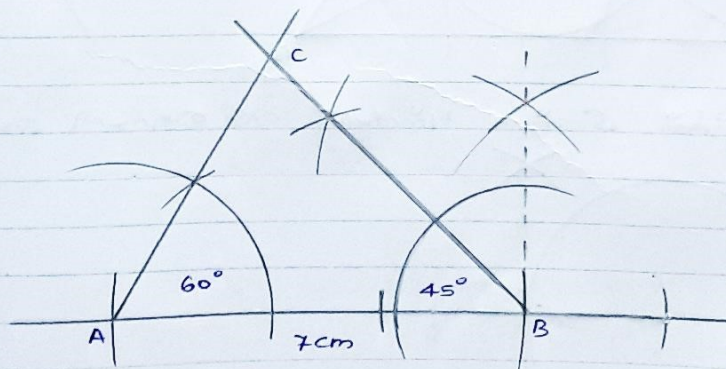 C
60°
45°
A
7cm
B